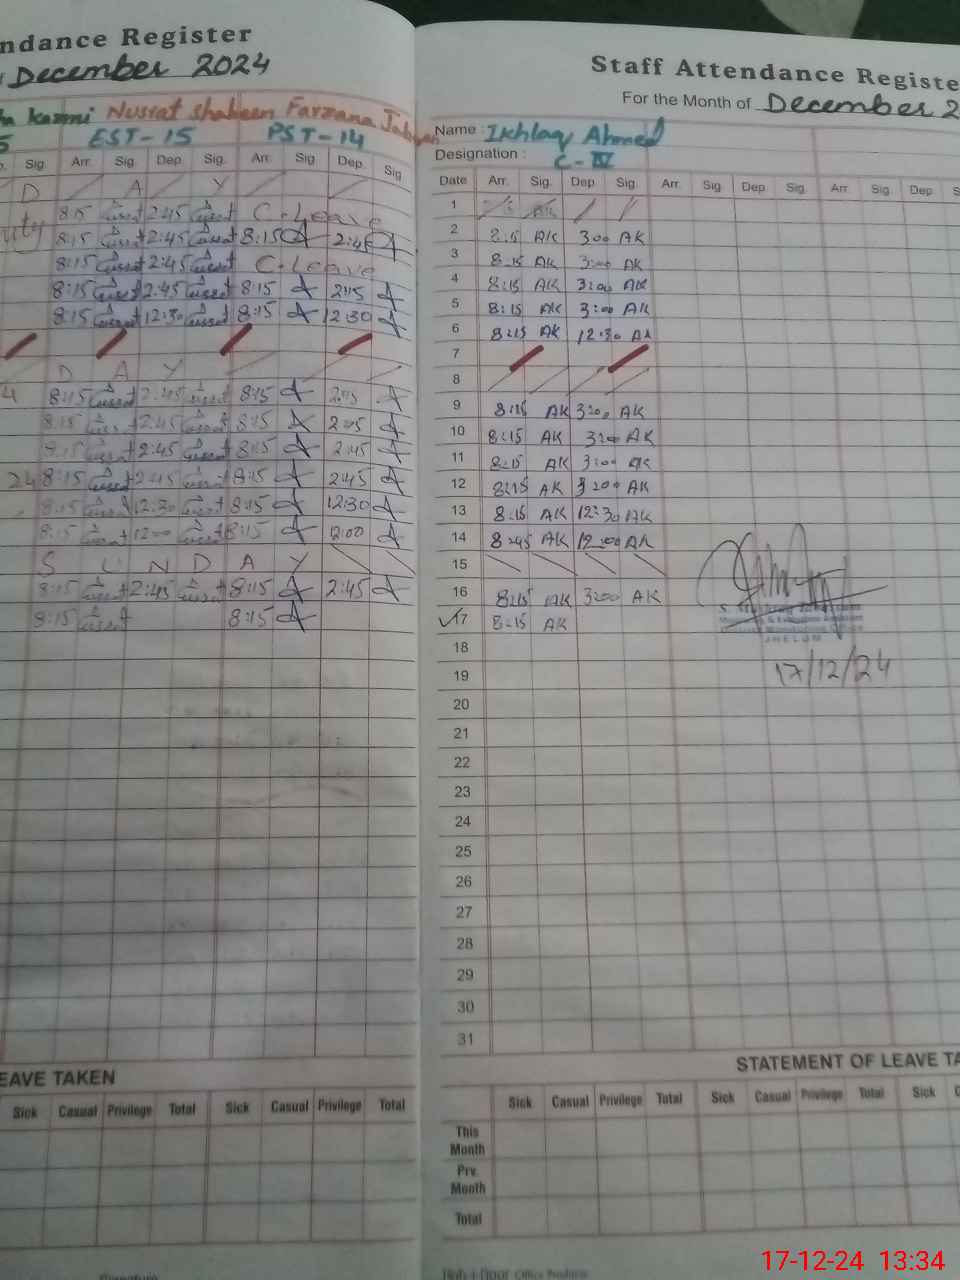 ndance Register
December 2024
ha kazmi Nusrat shaheen Farzana Jabeen
5 EST-15 PST-14
p. Sig Arr. Sig. Dep Sig. Arr. Sig Dep. Sig
D A Y
8:15 2:45 C-Leave
uty 8:15 2:45 8:15 2:45
8:15 2:45 C-Leave
8:15 2:45 8:15 2:45
8:15 12:30 8:15 12:30
D A Y
4 8:15 2:45 8:15 2:45
8:15 2:45 8:15 2:45
8:15 2:45 8:15 2:45
24 8:15 2:45 8:15 2:45
8:15 12:30 8:15 12:30
8:15 12:00 8:15 12:00
S U N D A Y
8:15 2:45 8:15 2:45
8:15 8:15
EAVE TAKEN
Sick Casual Privilege Total Sick Casual Privilege Total
Staff Attendance Registe
For the Month of December 2
Name : Ikhlaq Ahmed
Designation : C-IV
Date Arr. Sig. Dep Sig. Arr. Sig. Dep Sig. Arr. Sig. Dep S
1
2 8:15 AK 3:00 AK
3 8:15 AK 3:00 AK
4 8:15 AK 3:00 AK
5 8:15 AK 3:00 AK
6 8:15 AK 12:30 AK
7
8
9 8:15 AK 3:00 AK
10 8:15 AK 3:00 AK
11 8:15 AK 3:00 AK
12 8:15 AK 3:00 AK
13 8:15 AK 12:30 AK
14 8:45 AK 12:00 AK
15
16 8:15 AK 3:00 AK
17 8:15 AK
JHELUM
17/12/24
18
19
20
21
22
23
24
25
26
27
28
29
30
31
STATEMENT OF LEAVE TA
Sick Casual Privilege Total Sick Casual Privilege Total Sick C
This Month
Prv. Month
Total
17-12-24 13:34